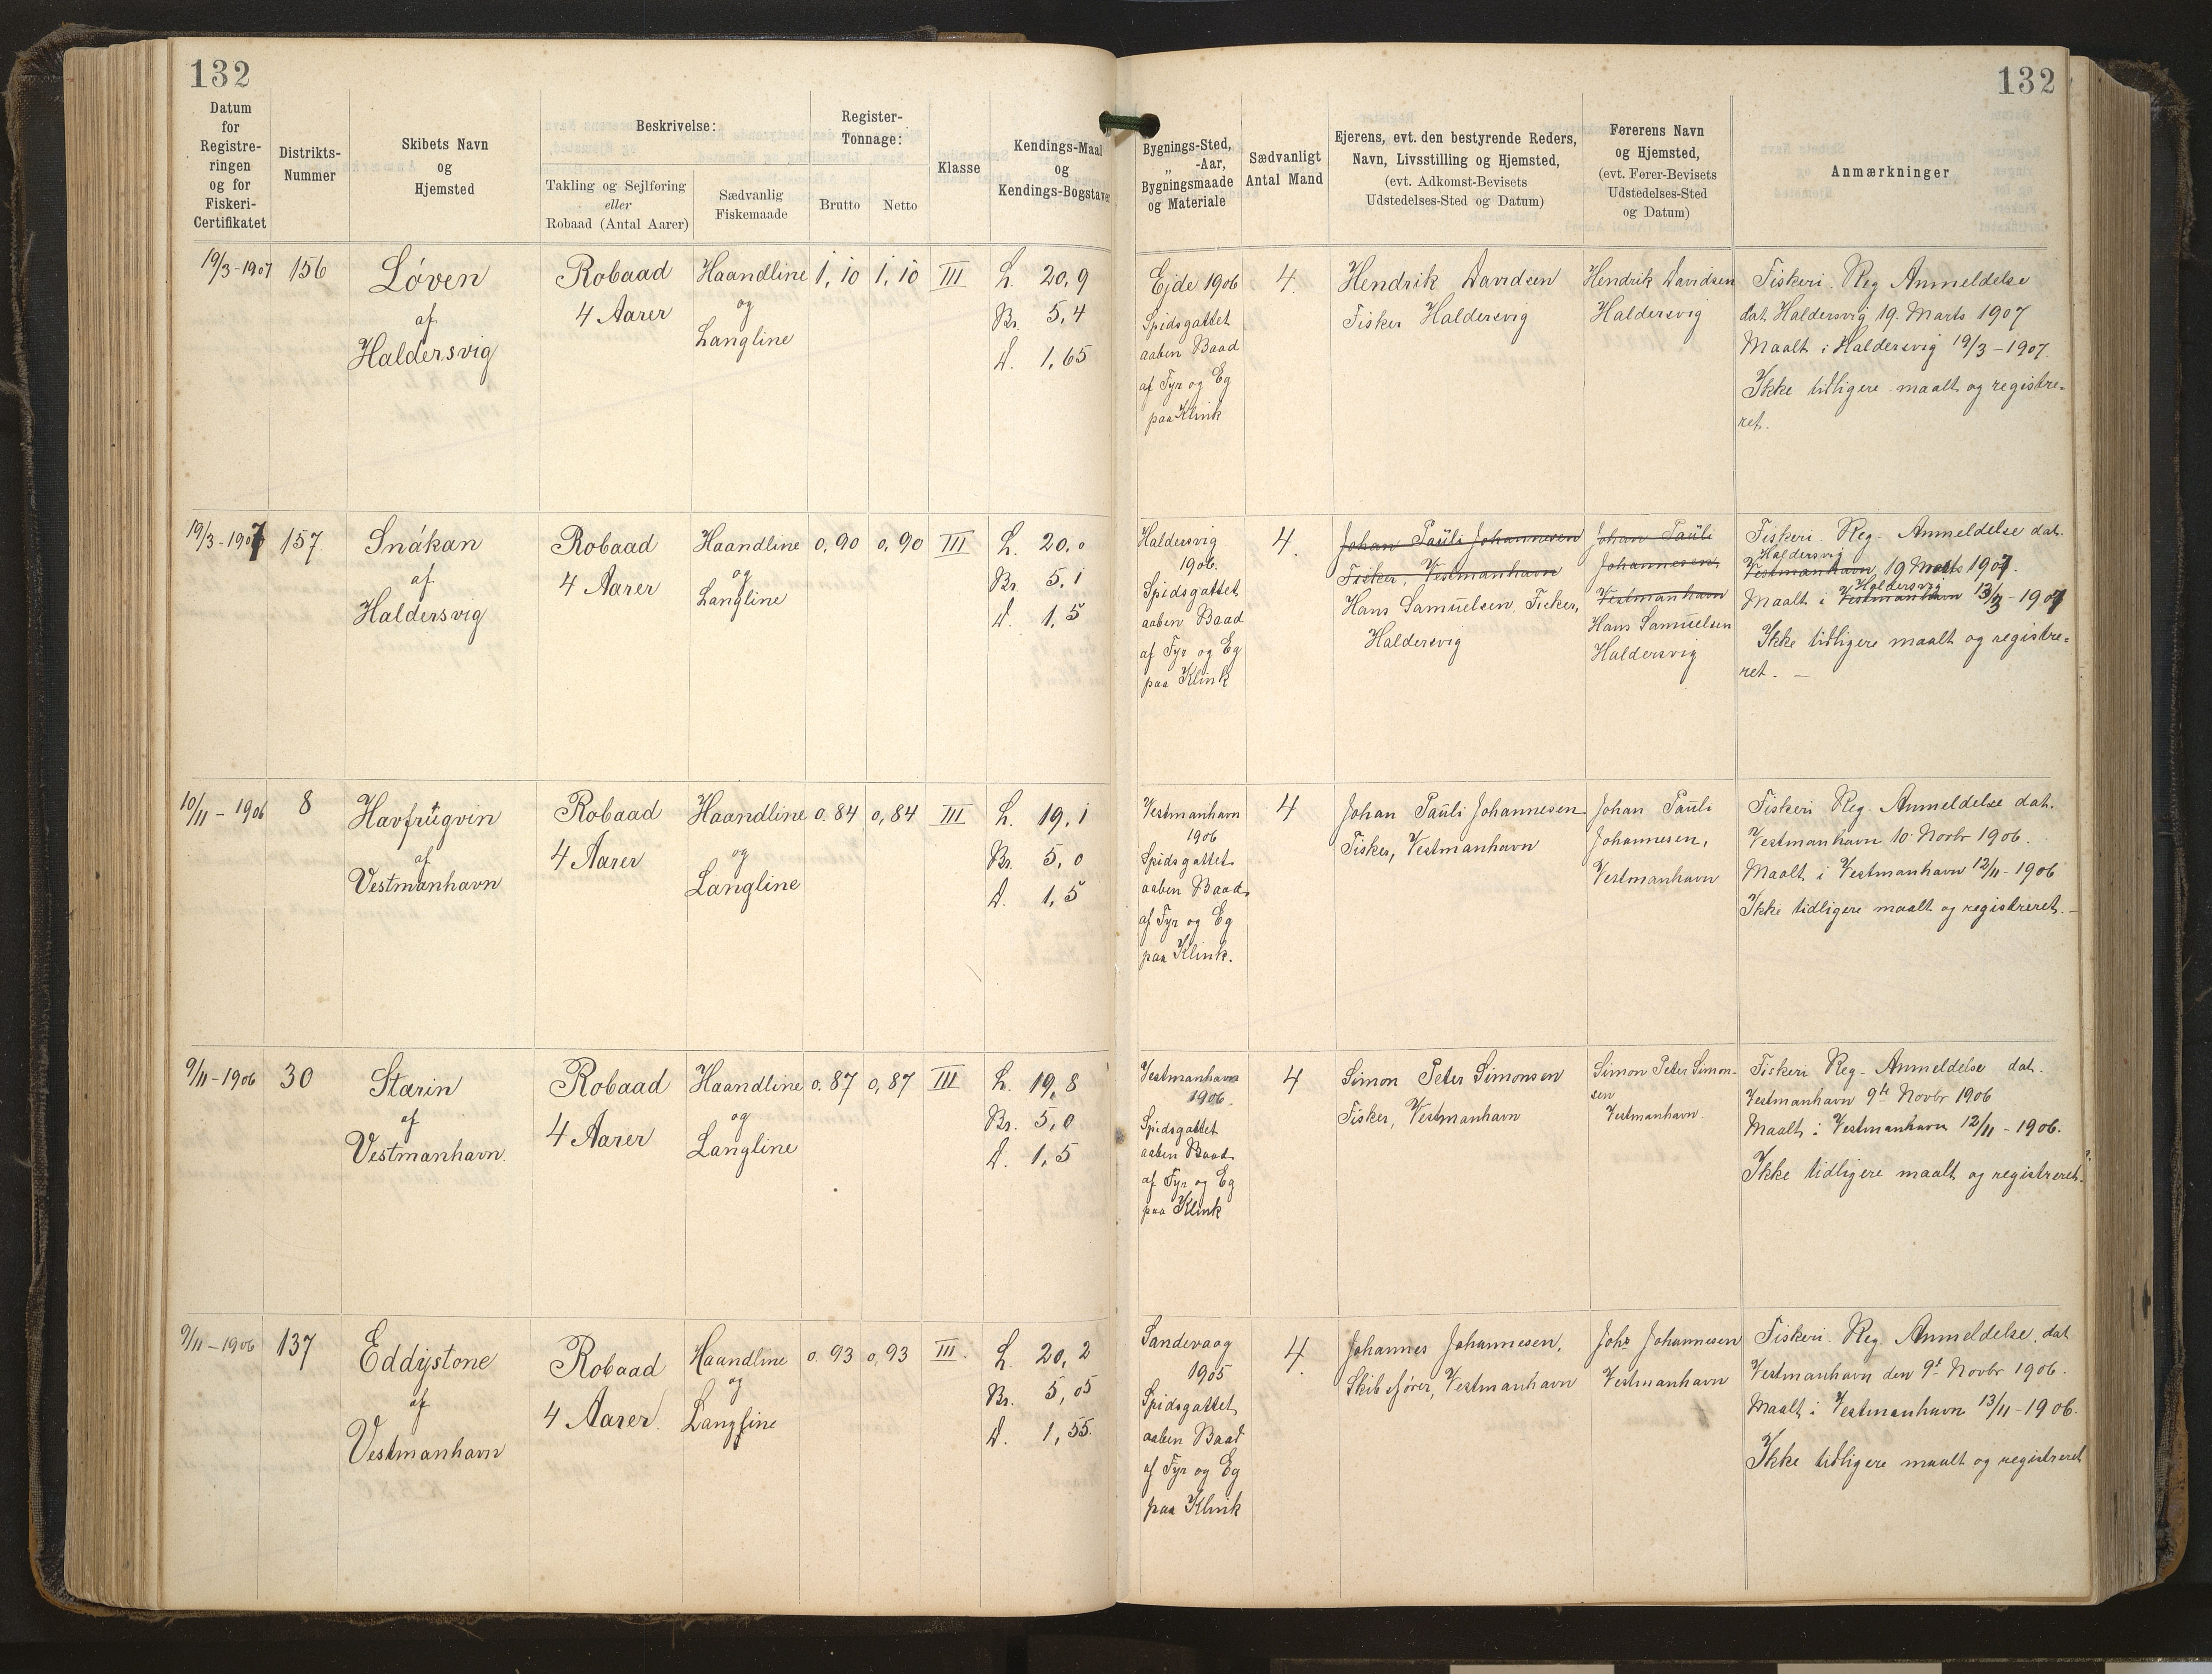 132
132
Datum
for
Registre-
ringen
og for
Fiskeri-
Certifikatet
Distrikts-
Nummer
Skibets Navn
og
Hjemsted
Beskrivelse:
Takling og Sejlføring
eller
Robaad (Antal Aarer)
Sædvanlig
Fiskemaade
Register-
Tonnage:
Brutto
Netto
Klasse
Kendings-Maal
og
Kendings-Bogstaver
Bygnings-Sted,
„ -Aar,
Bygningsmaade
og Materiale
Sædvanligt
Antal Mand
Ejerens, evt. den bestyrende Reders,
Navn, Livsstilling og Hjemsted,
(evt. Adkomst-Bevisets
Udstedelses-Sted og Datum)
Førerens Navn
og Hjemsted,
(evt. Fører-Bevisets
Udstedelses-Sted
og Datum)
Anmærkninger
19/3-1907
156
Löven
af
Haldersvig
Robaad
4 Aarer
Haandline
og
Langline
1,10
1,10
III
L. 20,9
Br. 5,4
D. 1,65
Ejde 1906
Spidsgattet
aaben Baad
af Fyr og Eg
paa Klink
4.
Hendrik Davidsen
Fisker Haldersvig
Hendrik Davidsen
Haldersvig
Fiskeri. Reg Anmeldelse
dat. Haldersvig 19. Marts 1907
Maalt i Haldersvig 19/3-1907.
Ikke tidligere maalt og registre-
ret.
19/3-1907
157
Snákan
af
Haldersvig
Robaad
4 Aarer
Haandline
og
Langline
0,90
0,90
III
L. 20,0
Br. 5,1
D. 1,5
Haldersvig
1906.
Spidsgattet
aaben Baad
af Fyr og Eg
paa Klink
4.
Johan Paüli Johannesen
Fisker, Vestmanhavn
Hans Samüelsen, Fisker,
Haldersvig
Johan Paüli
Johannesen,
Vestmanhavn
Hans Samüelsen
Haldersvig
Fiskeri Reg- Anmeldelse dat.
Haldersvig
Vestmanhavn 19 Marts 1907.
Haldersvig
Maalt i Vestmanhavn 13/3-1907
Ikke tidligere maalt og registre-
ret. —
10/11-1906
8
Havfrügvin
af
Vestmanhavn
Robaad
4 Aarer
Haandline
og
Langline
0.84
0,84
III
L. 19,1
Br. 5,0
D. 1,5
Vestmanhavn
1906
Spidsgattet
aaben Baad
af Fyr og Eg
paa Klink.
4
Johan Paüli Johannesen
Fisker, Vestmanhavn
Johan Paüli
Johannesen,
Vestmanhavn
Fiskeri Reg. Anmeldelse dat.
Vestmanhavn 10. Novbr 1906.
Maalt i Vestmanhavn 12/11-1906
Ikke tidligere maalt og registreret.—
9/11-1906
30
Stærin
af
Vestmanhavn.
Robaad
4 Aarer
Haandline
og
Langline
0.87
0,87
III
L. 19,8
Br. 5,0
D. 1,5
Vestmanhavn
1906.
Spidsgattet
aaben Baad
af Fyr og Eg
paa Klink
4
Simon Peter Simonsen
Fisker, Vestmanhavn
Simon Peter Simon-
sen
Vestmanhavn.
Fiskeri Reg- Anmeldelse dat.
Vestmanhavn 9de Novbr 1906
Maalt i Vestmanhavn 12/11-1906.
Ikke tidligere maalt og registreret.
9/11-1906
137
Eddystone
af
Vestmanhavn
Robaad
4 Aarer.
Haandline
og
Langline
0.93
0,93
III.
L. 20,2
Br. 5,05
D. 1,55.
Sandevaag
1905
Spidsgattet
aaben Baad
af Fyr og Eg
paa Klink
4.
Johannes Johannesen,
Skibsfører, Vestmanhavn
Johs Johannesen
Vestmanhavn
Fiskeri. Reg. Anmeldelse, dat
Vestmanhavn den 9' Novbr 1906.
Maalt i Vestmanhavn 13/11-1906.
Ikke tidligere maalt og registreret